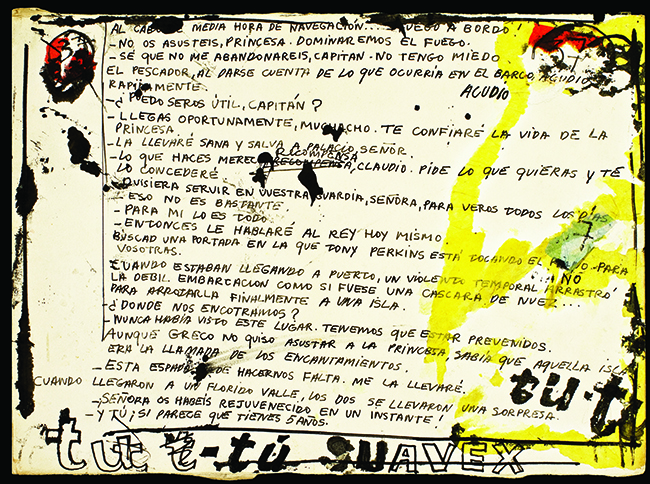 AL CABO DE MEDIA HORA DE NAVEGACIÓN.... FUEGO A BORDO!
-NO OS ASUSTEIS, PRINCESA. DOMINAREMOS EL FUEGO.
- SÉ QUE NO ME ABANDONAREIS, CAPITAN. NO TENGO MIEDO
EL PESCADOR, AL DARSE CUENTA DE LO QUE OCURRÍA EN EL BARCO, ACUDIO
RAPIDAMENTE. ACUDÍO
-¿PUEDO SEROS ÚTIL, CAPITÁN?
- LLEGAS OPORTUNAMENTE, MUCHACHO. TE CONFIARÉ LA VIDA DE LA
PRINCESA.
- LA LLEVARÉ SANA Y SALVA A PALACIO, SEÑOR.
RECOMPENSA
- LO QUE HACES MERECE RECOMPENSA, CLAUDIO. PIDE LO QUE QUIERAS Y TE
LO CONCEDERÉ
- QUISIERA SERVIR EN VUESTRA GUARDIA, SEÑORA, PARA VEROS TODOS LOS DÍAS
- ESO NO ES BASTANTE
- PARA MI LO ES TODO
- ENTONCES LE HABLARÉ AL REY HOY MISMO.
BUSCAD UNA PORTADA EN LA QUE TONY PERKINS ESTÁ TOCANDO EL PIANO. PARA
VOSOTRAS. NO
CUANDO ESTABAN LLEGANDO A PUERTO, UN VIOLENTO TEMPORAL ARRASTRÓ
LA DEBIL EMBARCACION COMO SI FUESE UNA CASCARA DE NUEZ...
PARA ARROJARLA FINALMENTE A UNA ISLA.
-¿DONDE NOS ENCOTRAMOS?
- NUNCA HABÍA VISTO ESTE LUGAR. TENEMOS QUE ESTAR PREVENIDOS.
AUNQUE GRECO NO QUISO ASUSTAR A LA PRINCESA, SABÍA QUE AQUELLA ISLA
ERA LA LLAMADA DE LOS ENCANTAMIENTOS.
- ESTA ESPADA PUEDE HACERNOS FALTA. ME LA LLEVARÉ.
CUANDO LLEGARON A UN FLORIDO VALLE, LOS DOS SE LLEVARON UNA SORPRESA.
-¡SEÑORA OS HABÉIS REJUVENECIDO EN UN INSTANTE!
- Y TÚ ¡SI PARECE QUE TIENES 5 AÑOS.
tu-t
tu t-tú SUAVEX